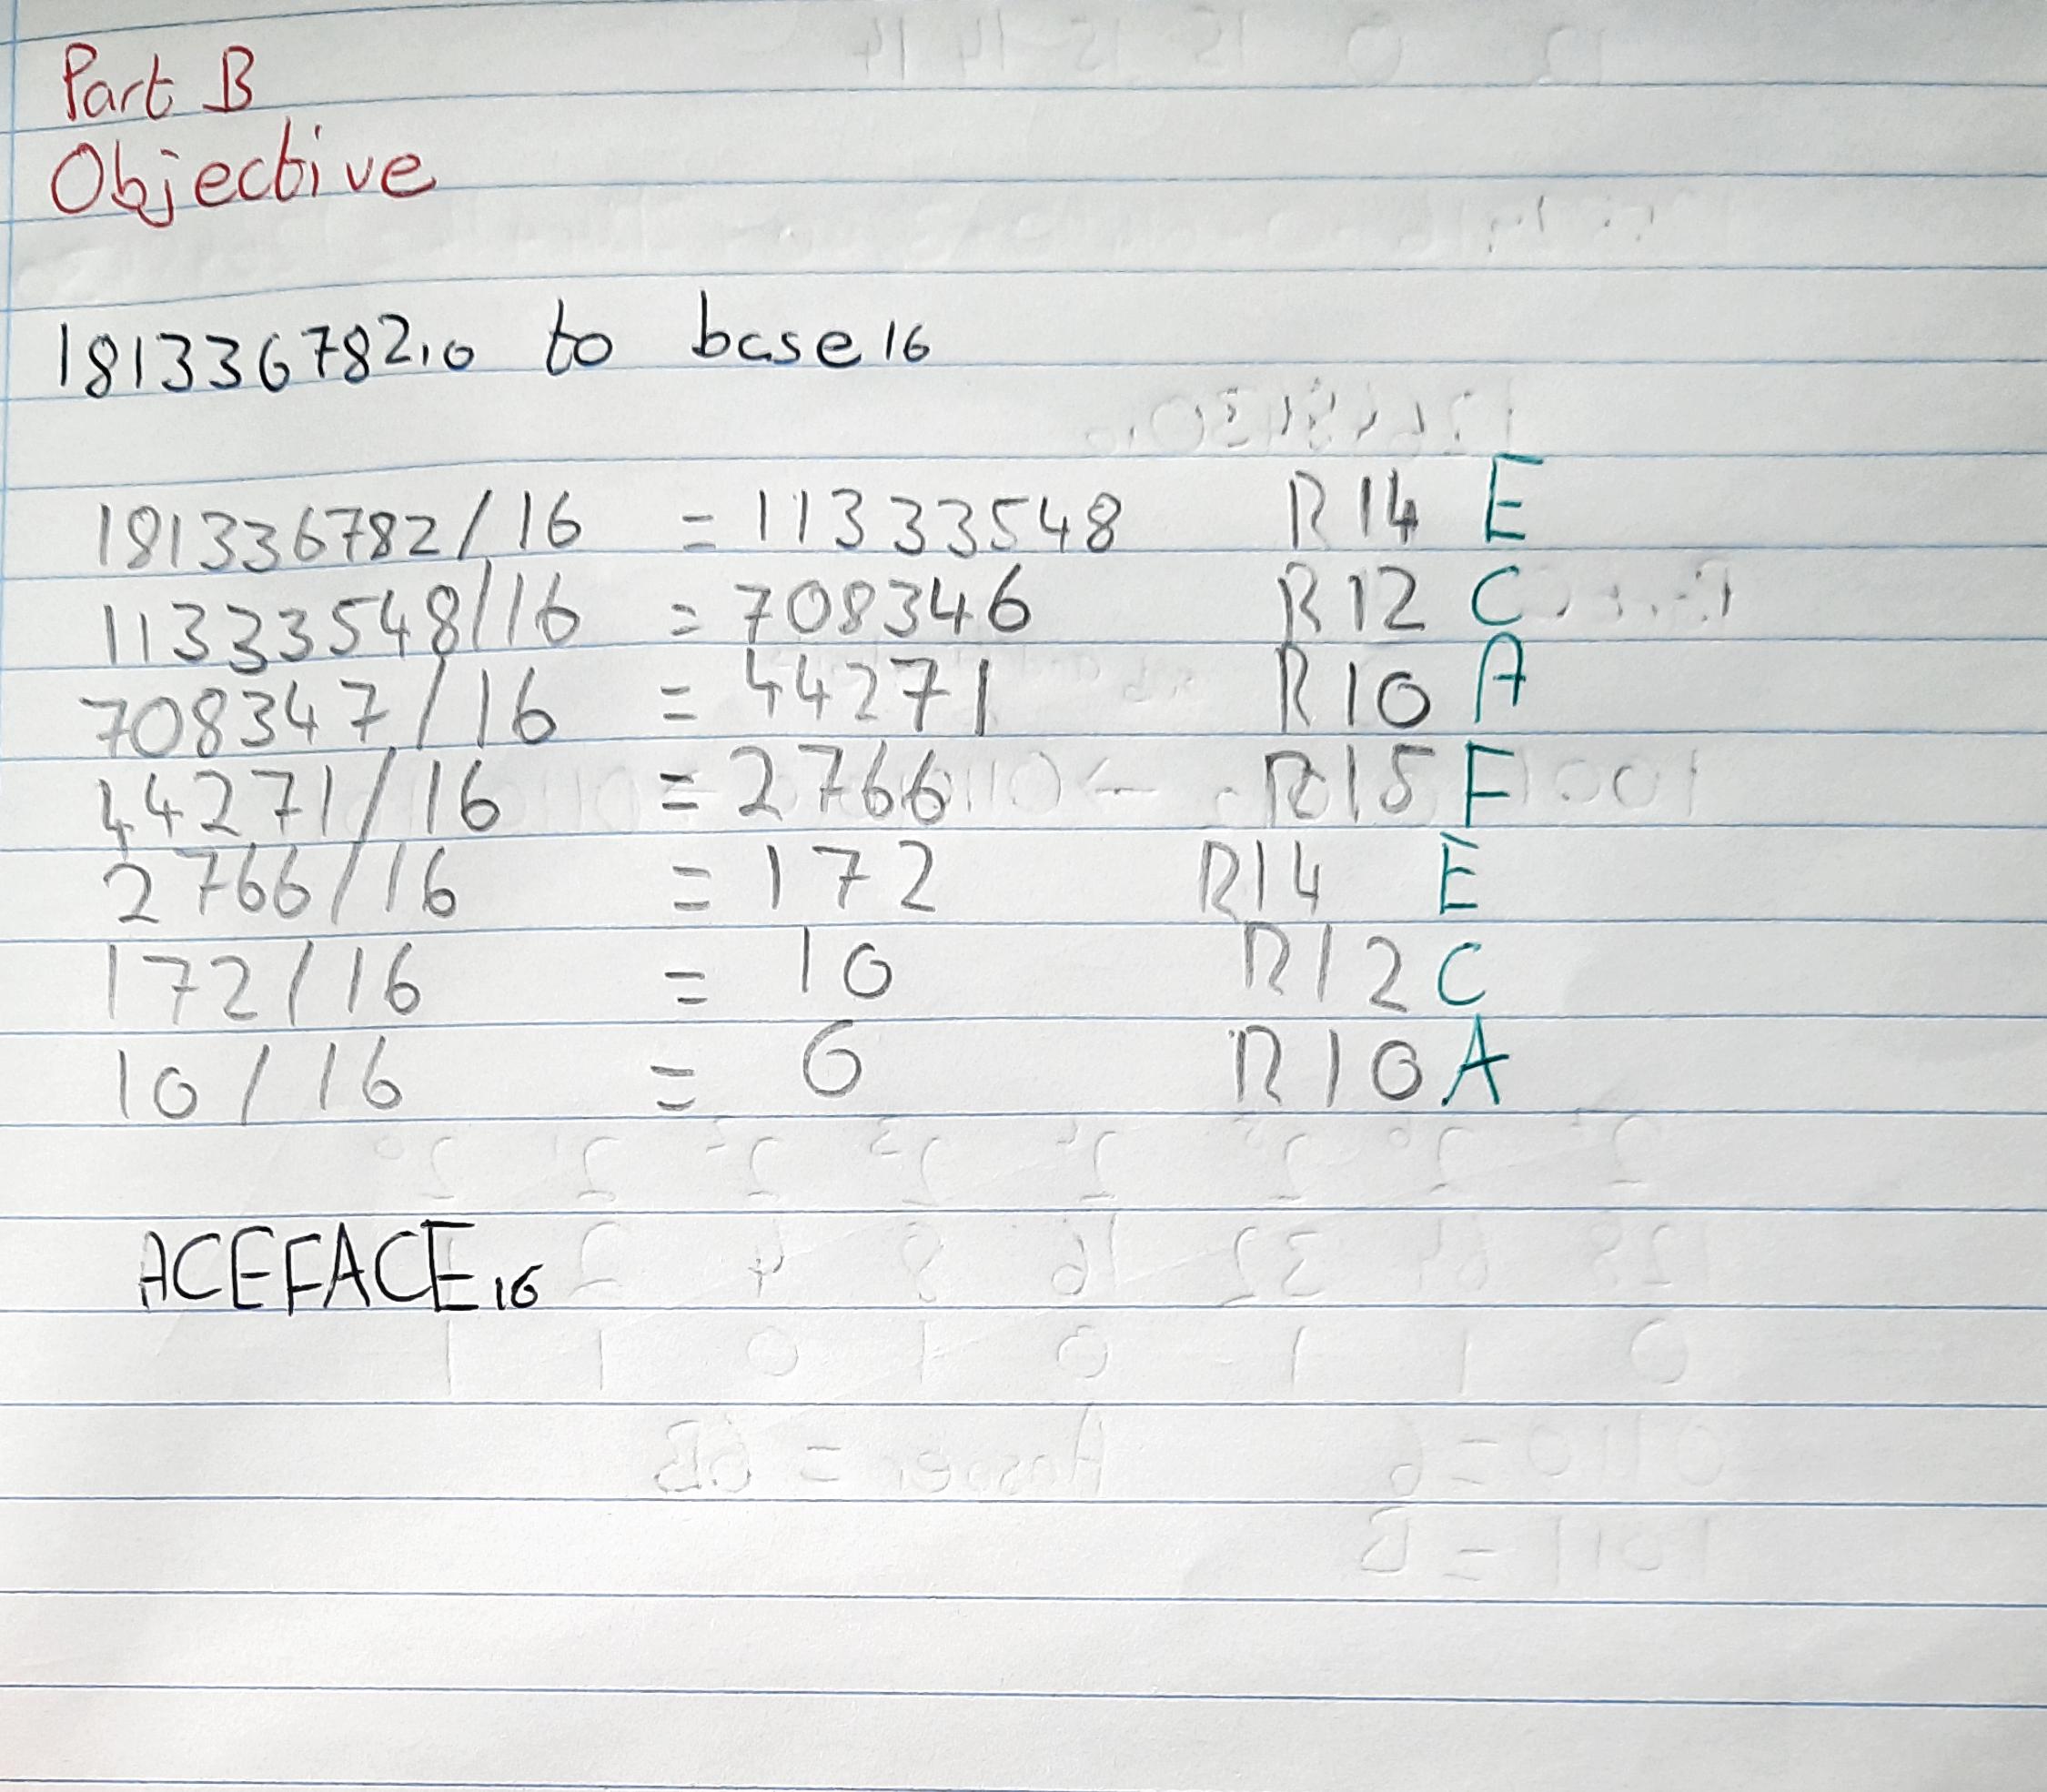 Part B
Objective
181336782₁₀ to base 16
181336782/16 = 11333548 R14 E
11333548/16 = 708346 R12 C
708347/16 = 44271 R10 A
44271/16 = 2766 R15 F
2766/16 = 172 R14 E
172/16 = 10 R12 C
10/16 = 0 R10 A
ACEFACE₁₆